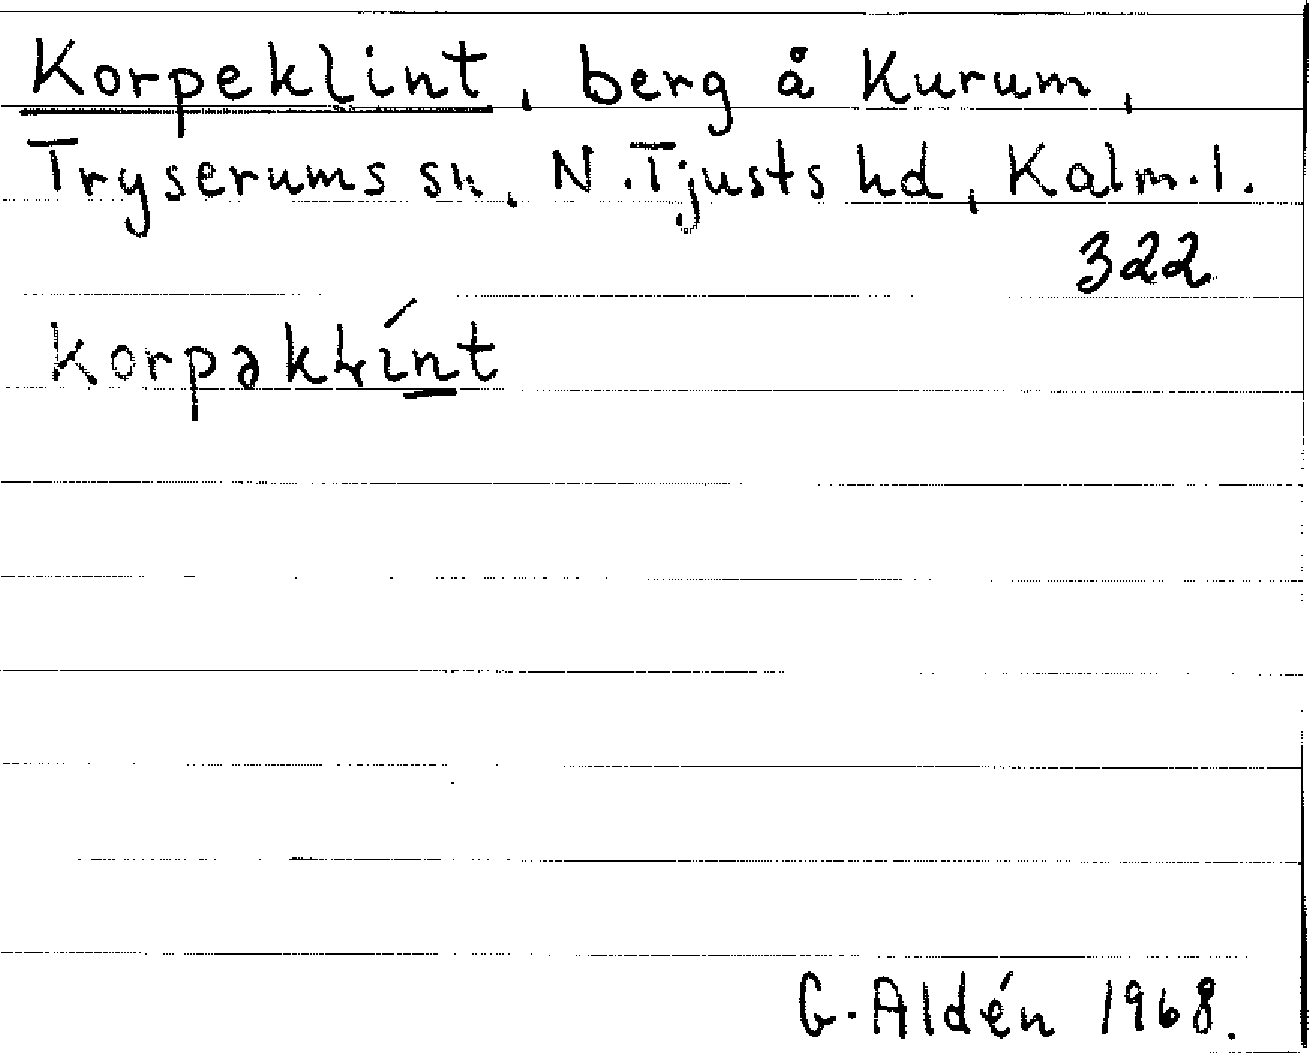 Korpeklint, berg å Kurum,
Tryserums sn, N. Tjusts hd, Kalm. l.
322
korpəklínt
G. Aldén 1968.